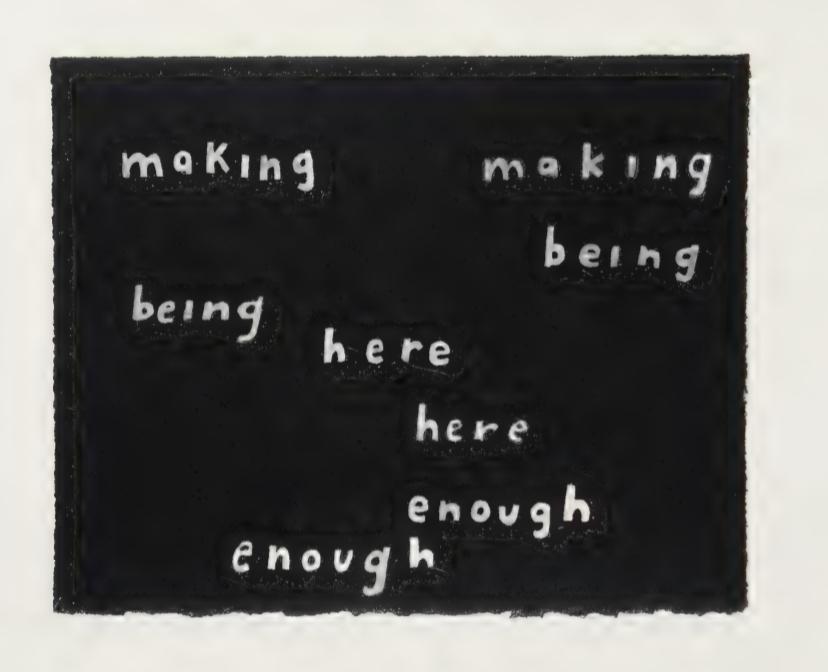 making making
being
being
here
here
enough
enough